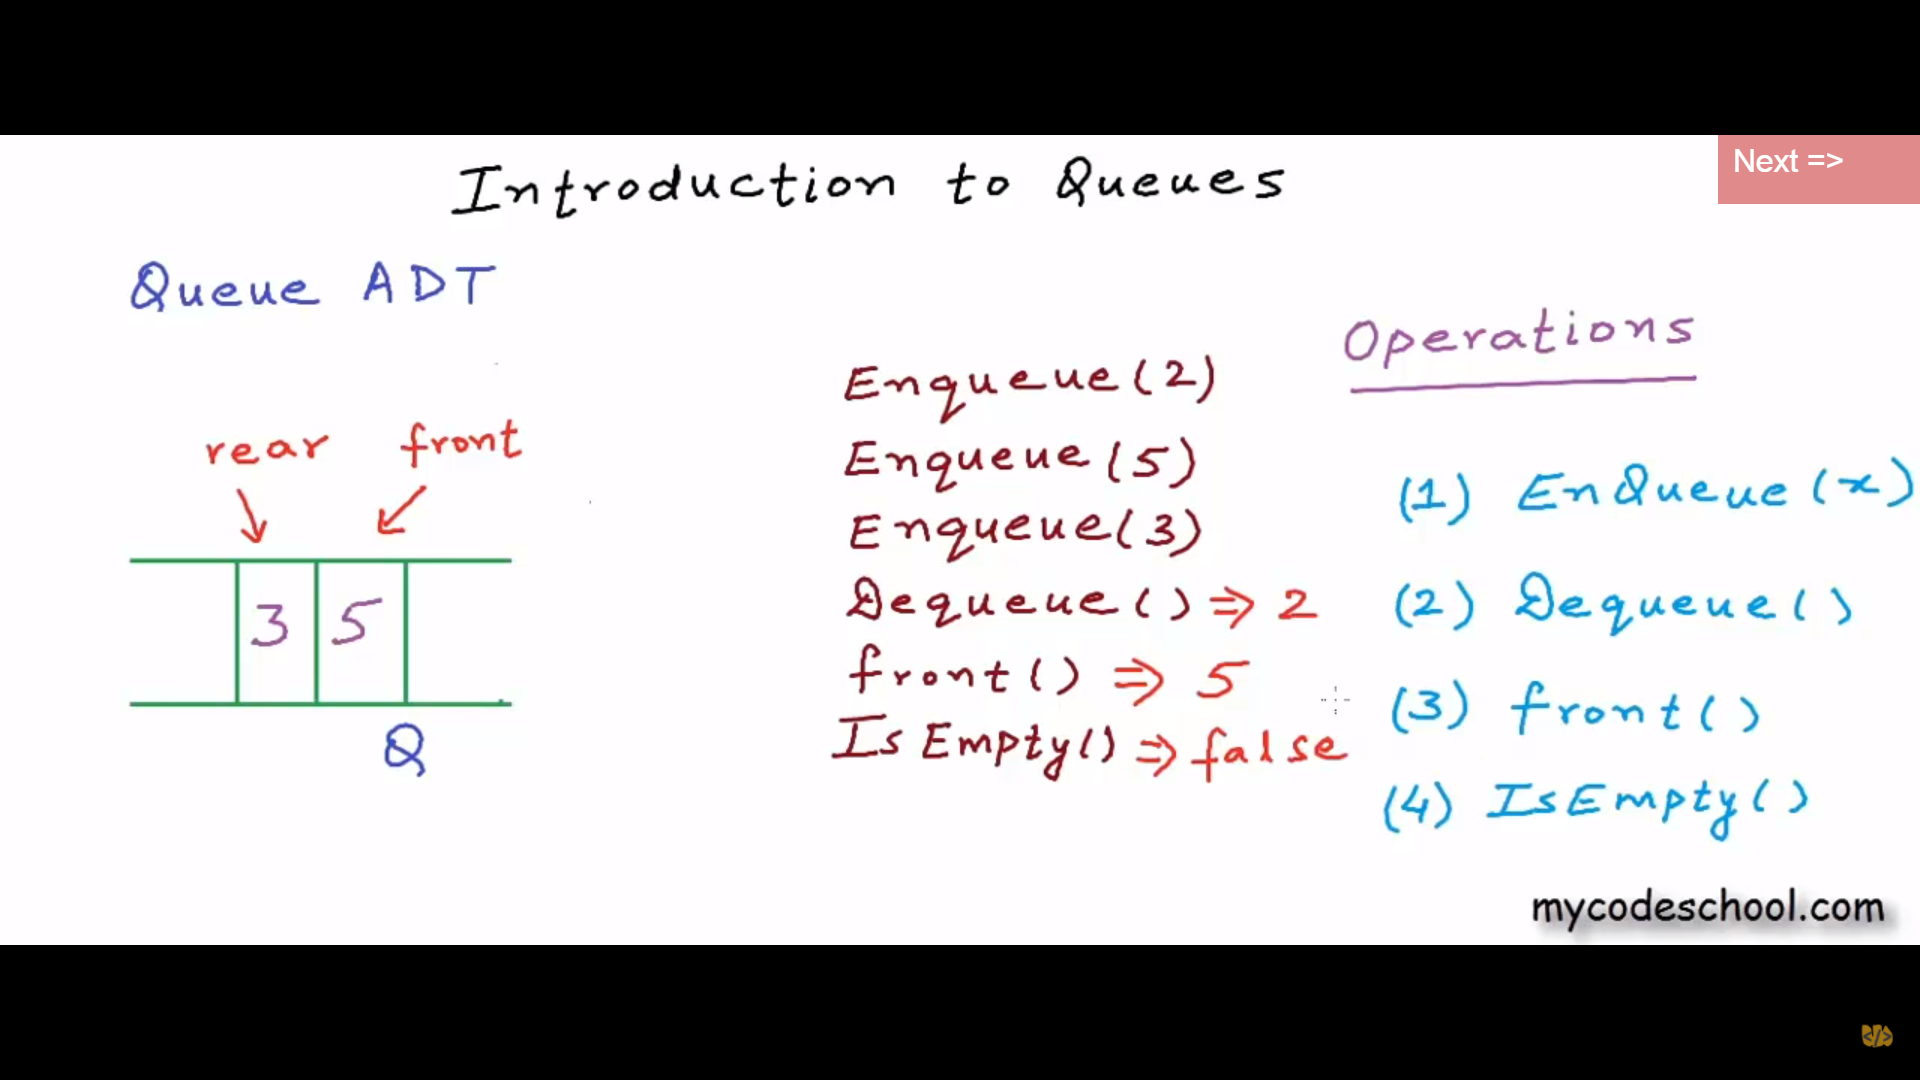 Introduction to Queues
Next =>
Queue ADT
rear front
3 5
Q
Enqueue(2)
Enqueue(5)
Enqueue(3)
Dequeue() => 2
front() => 5
IsEmpty() => false
Operations
(1) EnQueue(x)
(2) Dequeue()
(3) front()
(4) IsEmpty()
mycodeschool.com